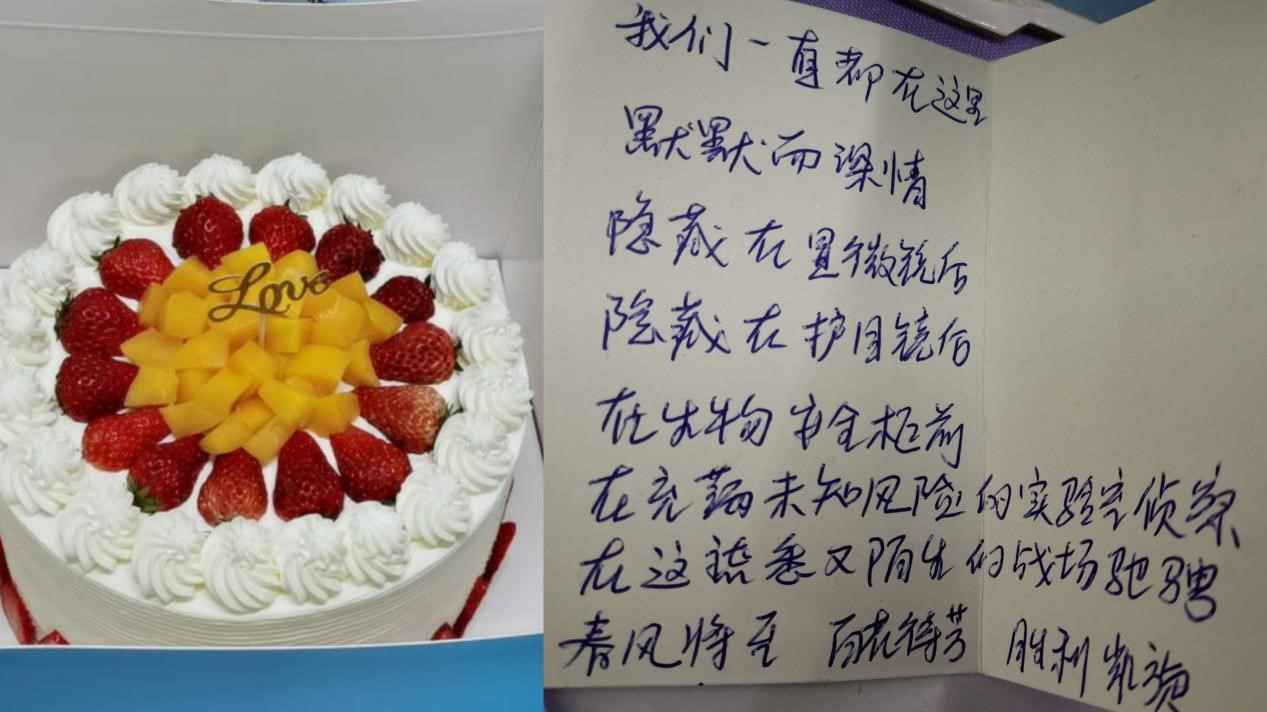 Love
我们一直都在这里
默默而深情
隐藏在显微镜后
隐藏在护目镜后
在生物安全柜前
在充满未知风险的实验室侦察
在这熟悉又陌生的战场驰骋
春风将至 百花待芳 胜利凯旋